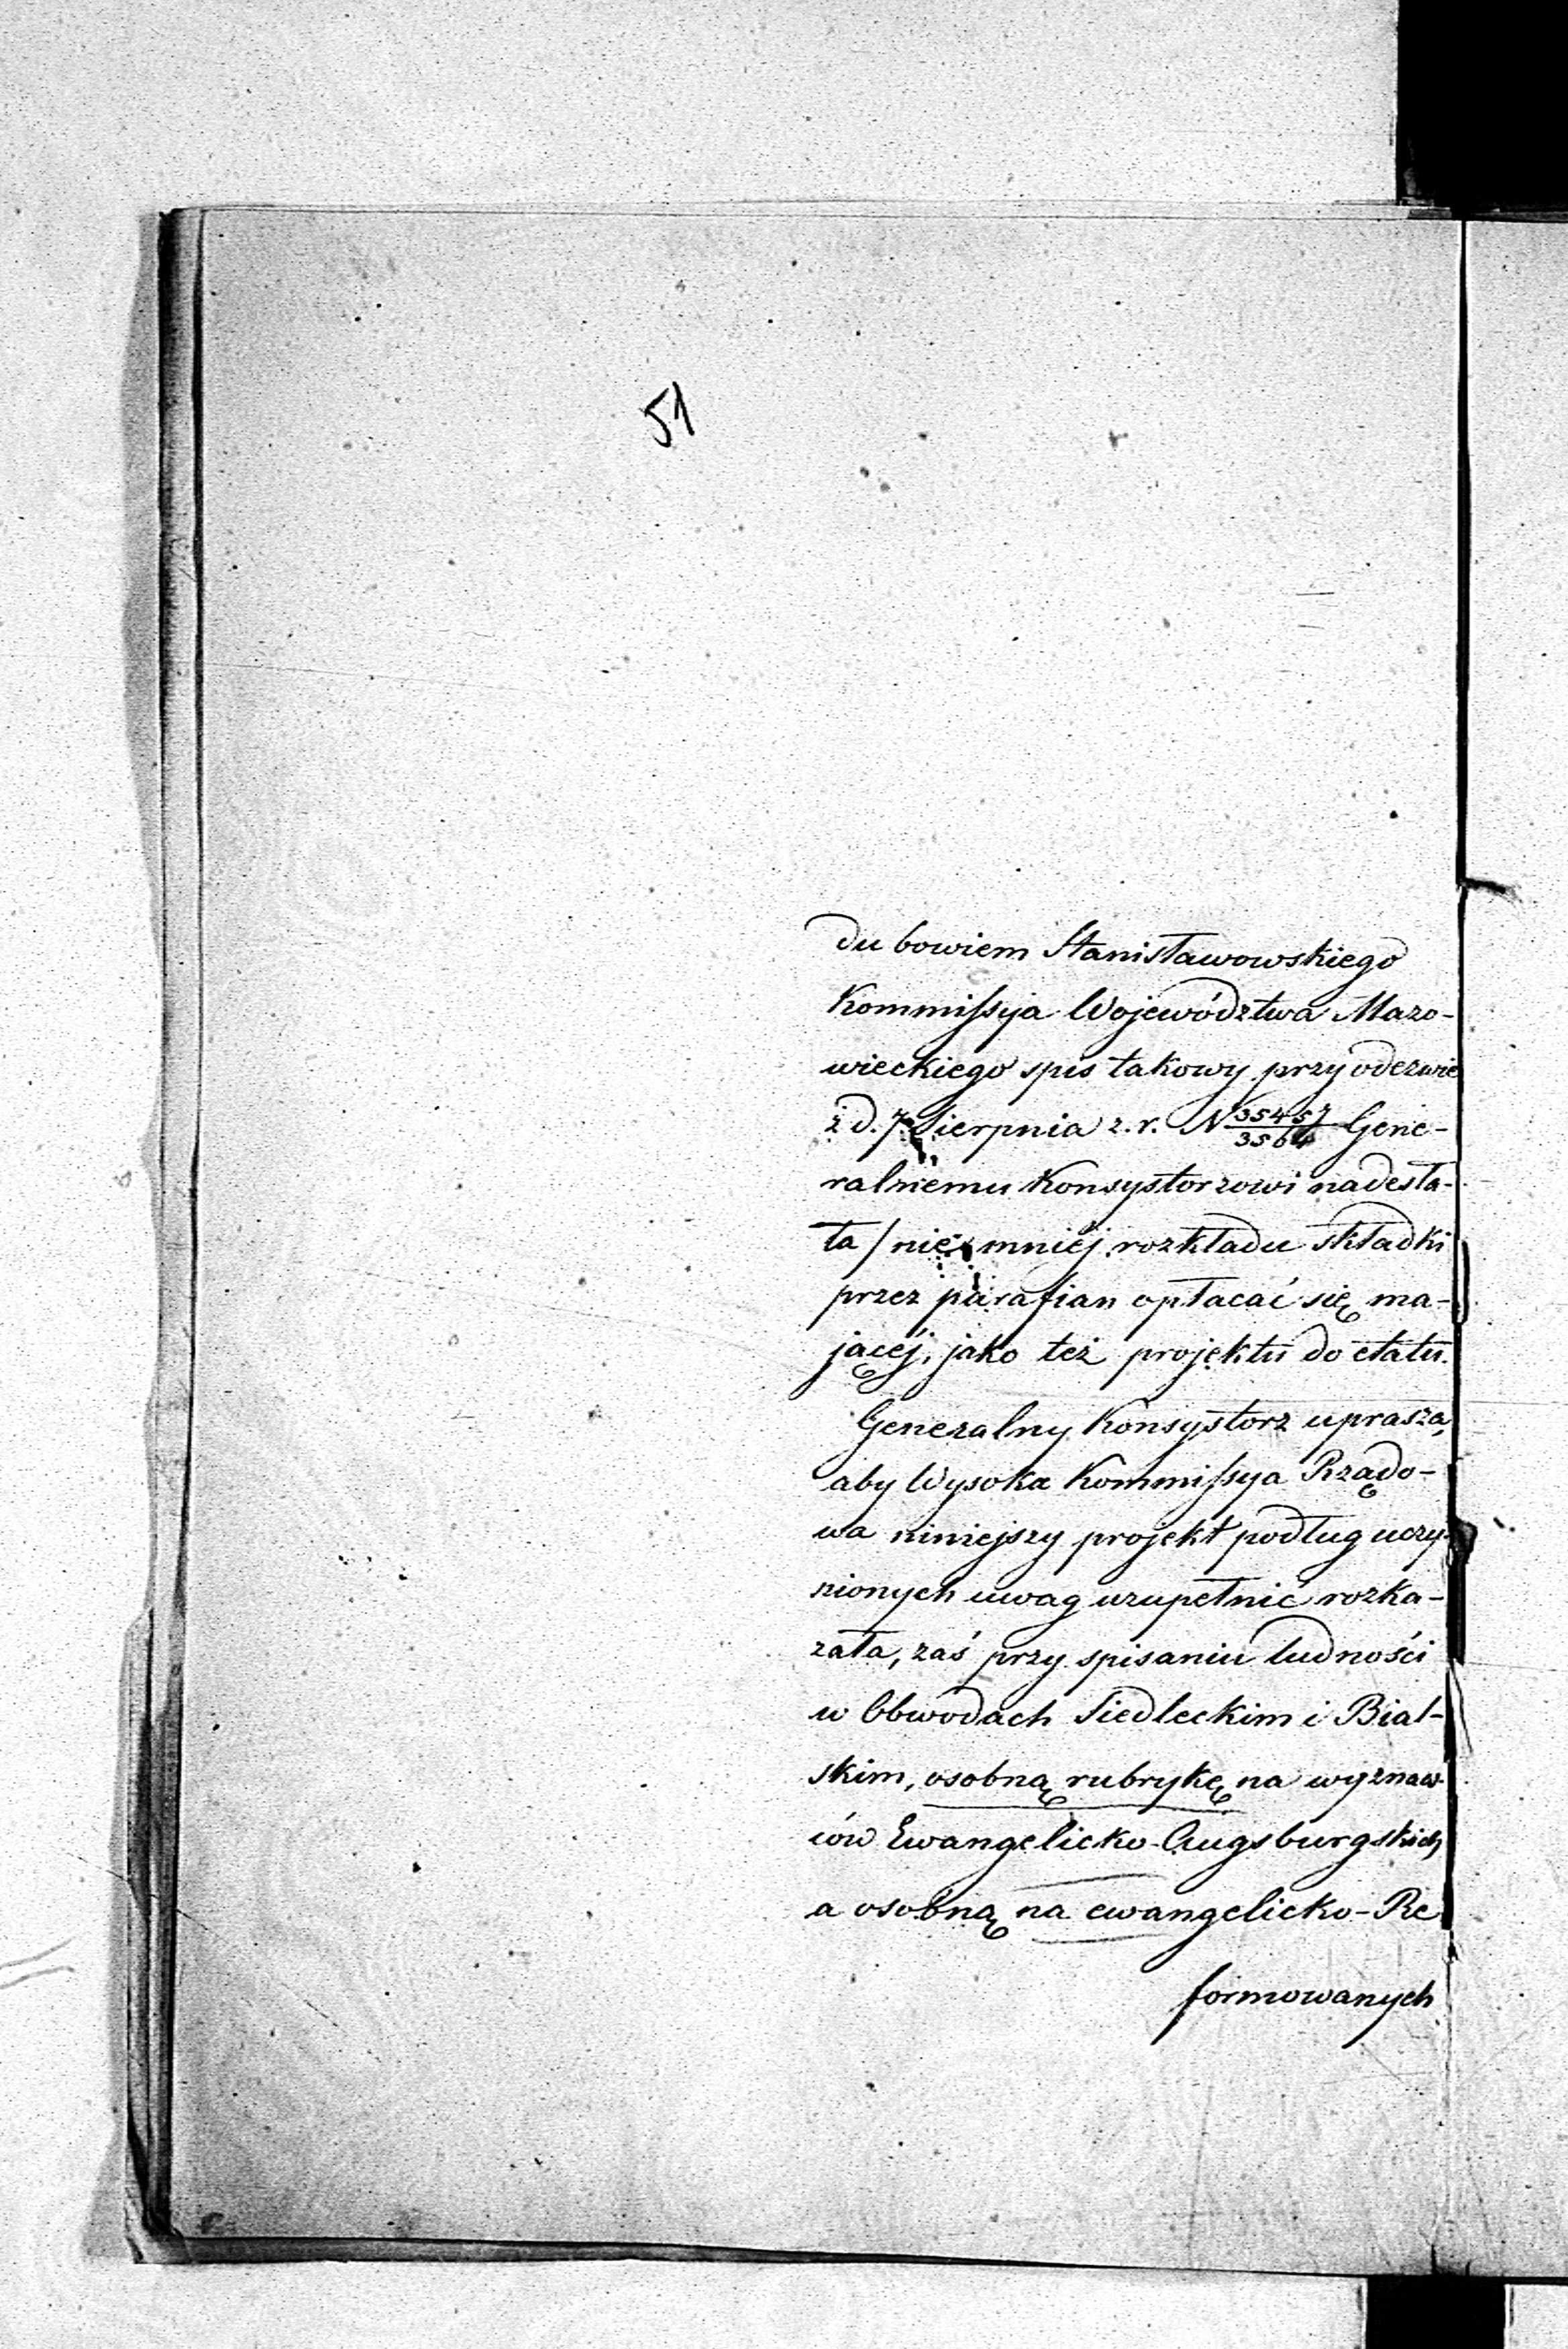 51
du bowiem Stanisławowskiego
Kommissyja Województwa Mazo-
wieckiego spis takowy przy odezwie
z d. 7 Sierpnia z. r. N 35457/3564 Gene-
ralnemu Konsystorzowi nadesła-
ła / nie mniéj rozkładu składki
przez parafian opłacać się ma-
jącéj, jako też projektu do etatu.
Generalny Konsystorz uprasza,
aby Wysoka Kommissya Rządo-
wa niniejszy projekt podług uczy-
nionych uwag uzupełnić rozka-
zała, zaś przy spisaniu ludności
w Obwodach Siedleckim i Bial-
skim, osobną rubrykę na wyznaw-
ców Ewangelicko-Augsburgskich
a osobną na ewangelicko-Re
formowanych